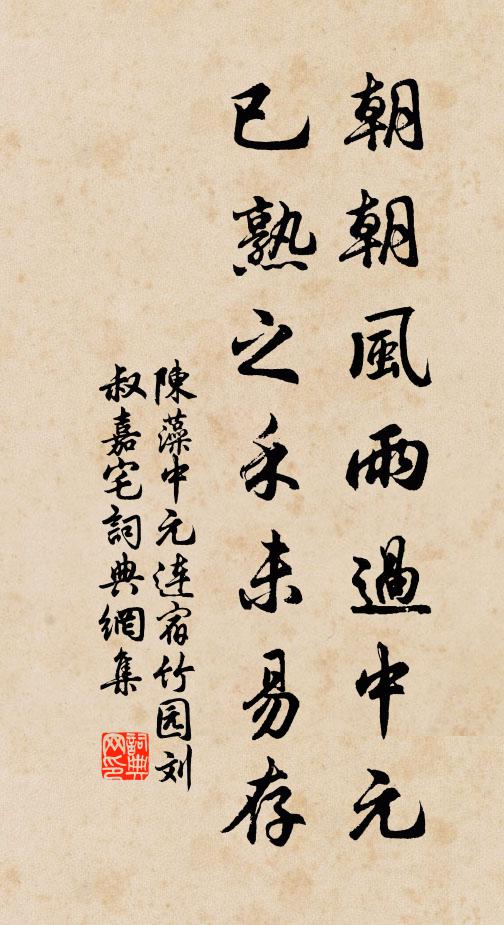 朝朝風雨過中元
已熟之禾未易存
陳藻中元连宿竹园刘
叔嘉宅詞典網集
詞典网印